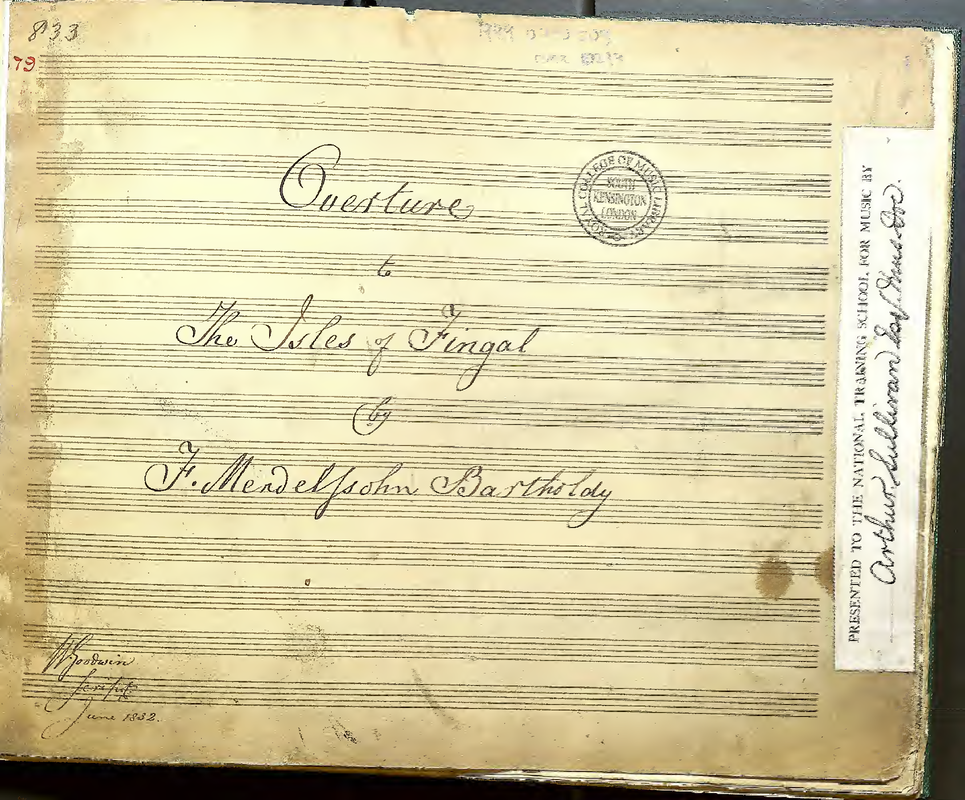 833
79
Overture
to
The Isles of Fingal
by
F. Mendelssohn Bartholdy
ROYAL COLLEGE OF MUSIC LIBRARY
SOUTH
KENSINGTON
LONDON
W Goodwin
scripsit
June 1832.
PRESENTED TO THE NATIONAL TRAINING SCHOOL FOR MUSIC BY
Arthur Sullivan Esq. Mus. Doc.